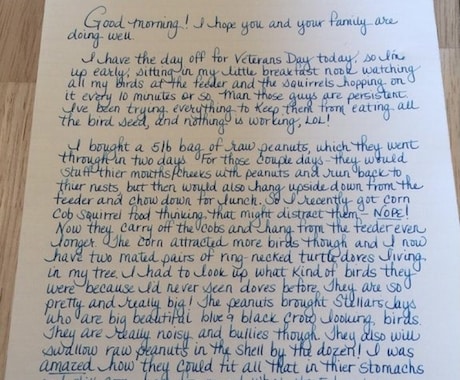 Good morning! I hope you and your family are
doing well.
I have the day off for Veterans Day today, so I'm
up early, sitting in my little breakfast nook watching
all my birds at the feeder and the squirrels hopping on
it every 10 minutes or so. Man those guys are persistent
I've been trying everything to keep them from eating all
the bird seed, and nothing is working, LOL!
I bought a 5lb bag of raw peanuts, which they went
through in two days. For those couple days they would
stuff thier mouths/cheeks with peanuts and run back to
thier nests, but then would also hang upside down from the
feeder and chow down for lunch. So I recently got corn
cob squirrel food thinking that might distract them - NOPE!
Now they carry off the cobs and hang from the feeder even
longer. The corn attracted more birds though and I now
have two mated pairs of ring-necked turtle doves living
in my tree. I had to look up what kind of birds they
were because I'd never seen doves before. They are so
pretty and really big! The peanuts brought Stellars Jays
who are big beautiful blue & black crow looking birds.
They are really noisy and bullies though. They also will
swallow raw peanuts in the shell by the dozen! I was
amazed how they could fit all that in thier stomachs